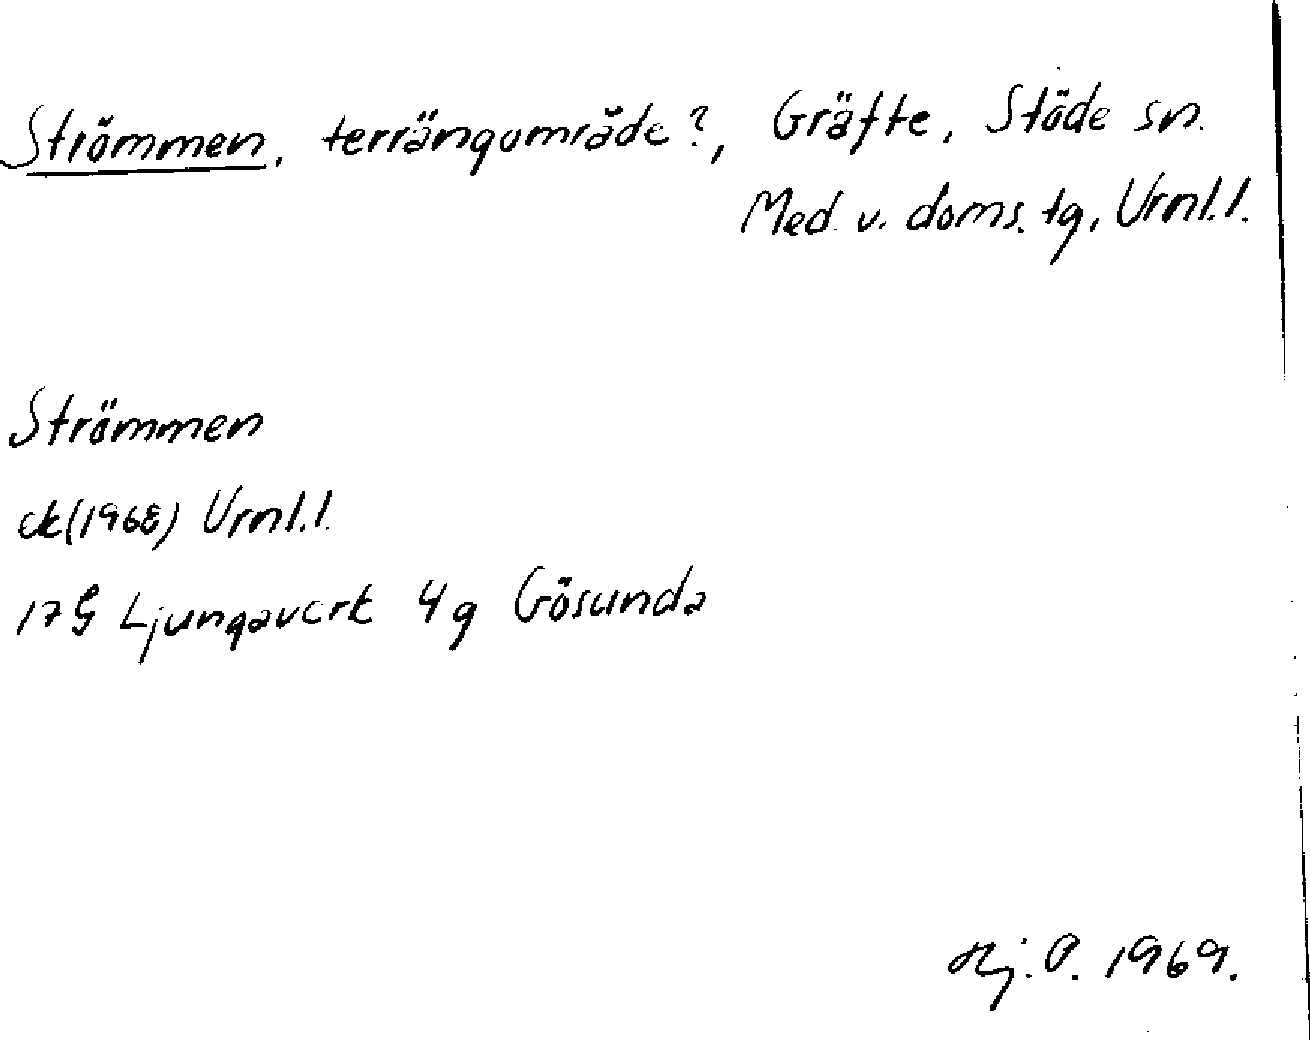 Strömmen, terrängområde?, Gräfte, Stöde sn.
Med. v. doms. tg, Urnl.l.
Strömmen
ek(1968) Urnl.l.
17G Ljungaverk 4g Gösunda
Hj. O. 1969.